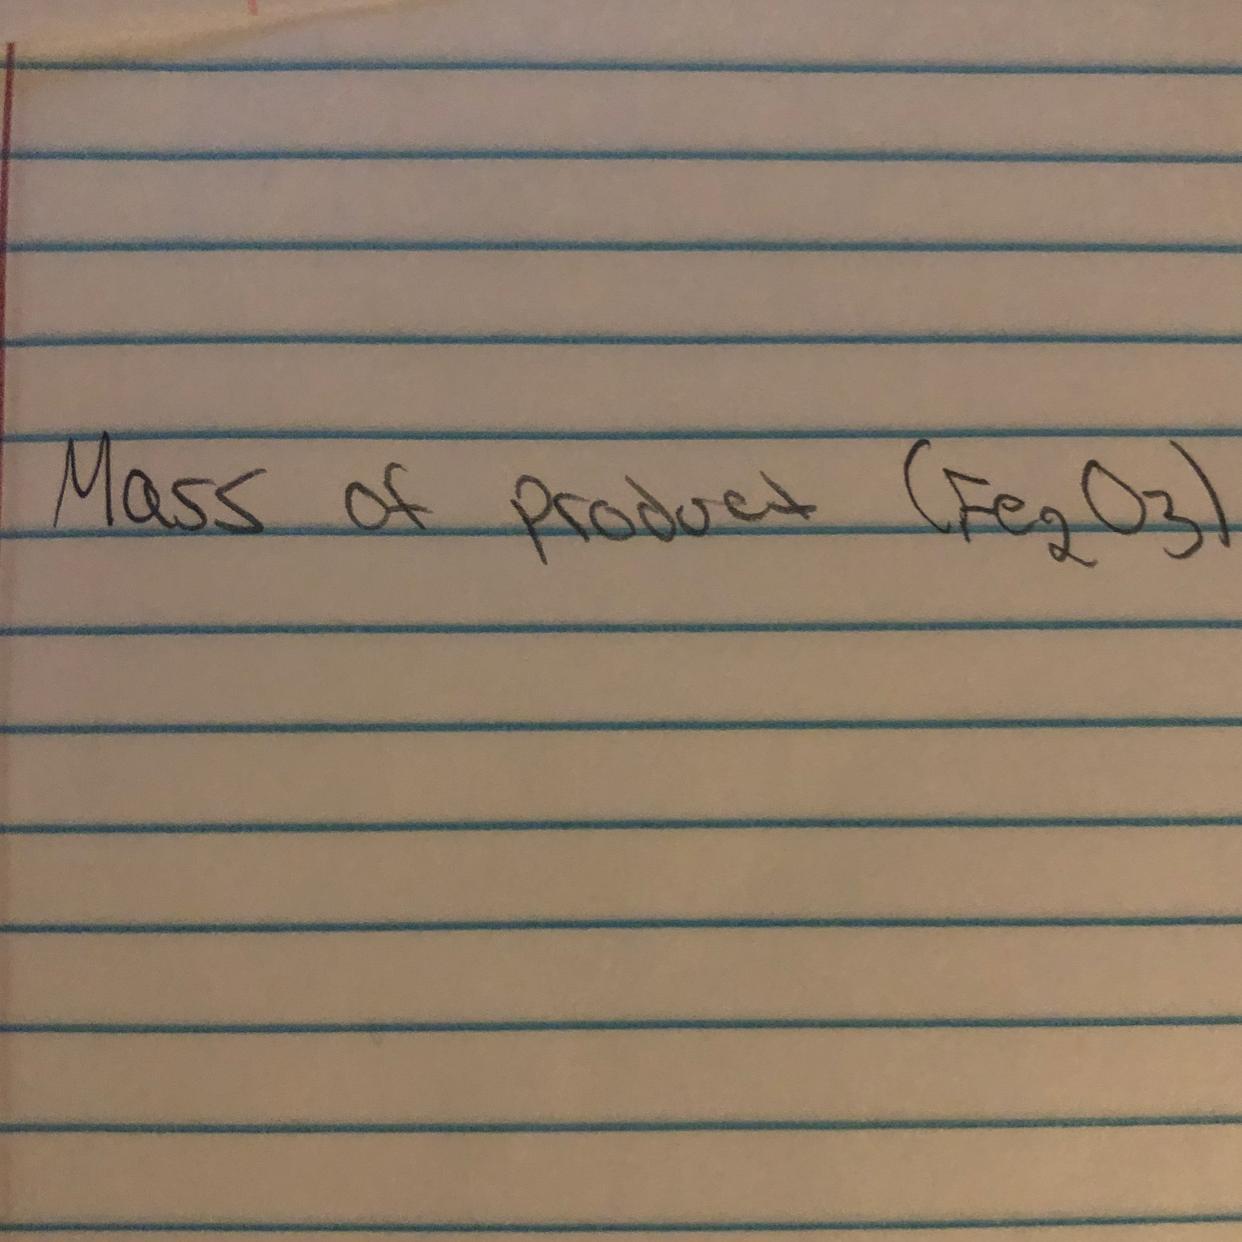 Mass of product (Fe₂O₃)